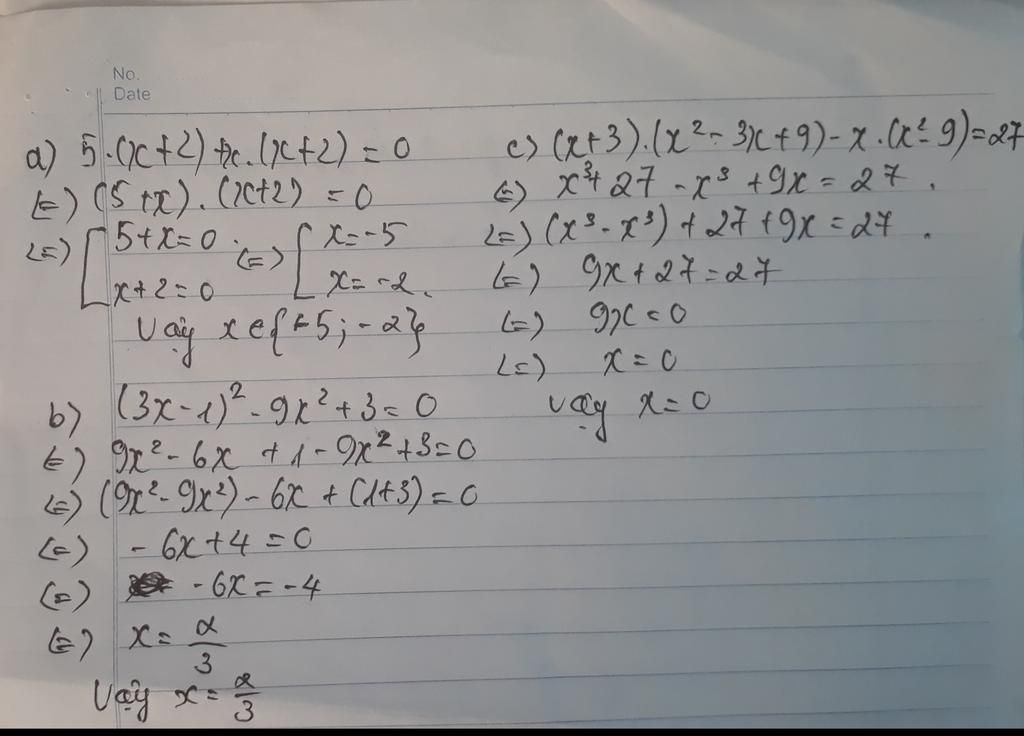 No.
Date
a) 5.(x+2)+x.(x+2) = 0
(=) (5+x).(x+2) = 0
<=> [ 5+x=0 <=> [ x=-5
x+2=0 x=-2.
Vậy x∈{-5;-2}
b) (3x-1)² - 9x² + 3 = 0
(=) 9x² - 6x + 1 - 9x² + 3 = 0
<=> (9x² - 9x²) - 6x + (1+3) = 0
<=> - 6x + 4 = 0
<=> - 6x = - 4
(=) x = 2/3
Vậy x = 2/3
c) (x+3).(x² - 3x+9) - x.(x² - 9) = 27
(=) x³ + 27 - x³ + 9x = 27.
<=> (x³ - x³) + 27 + 9x = 27.
<=> 9x + 27 = 27
<=> 9x = 0
<=> x = 0
Vậy x = 0